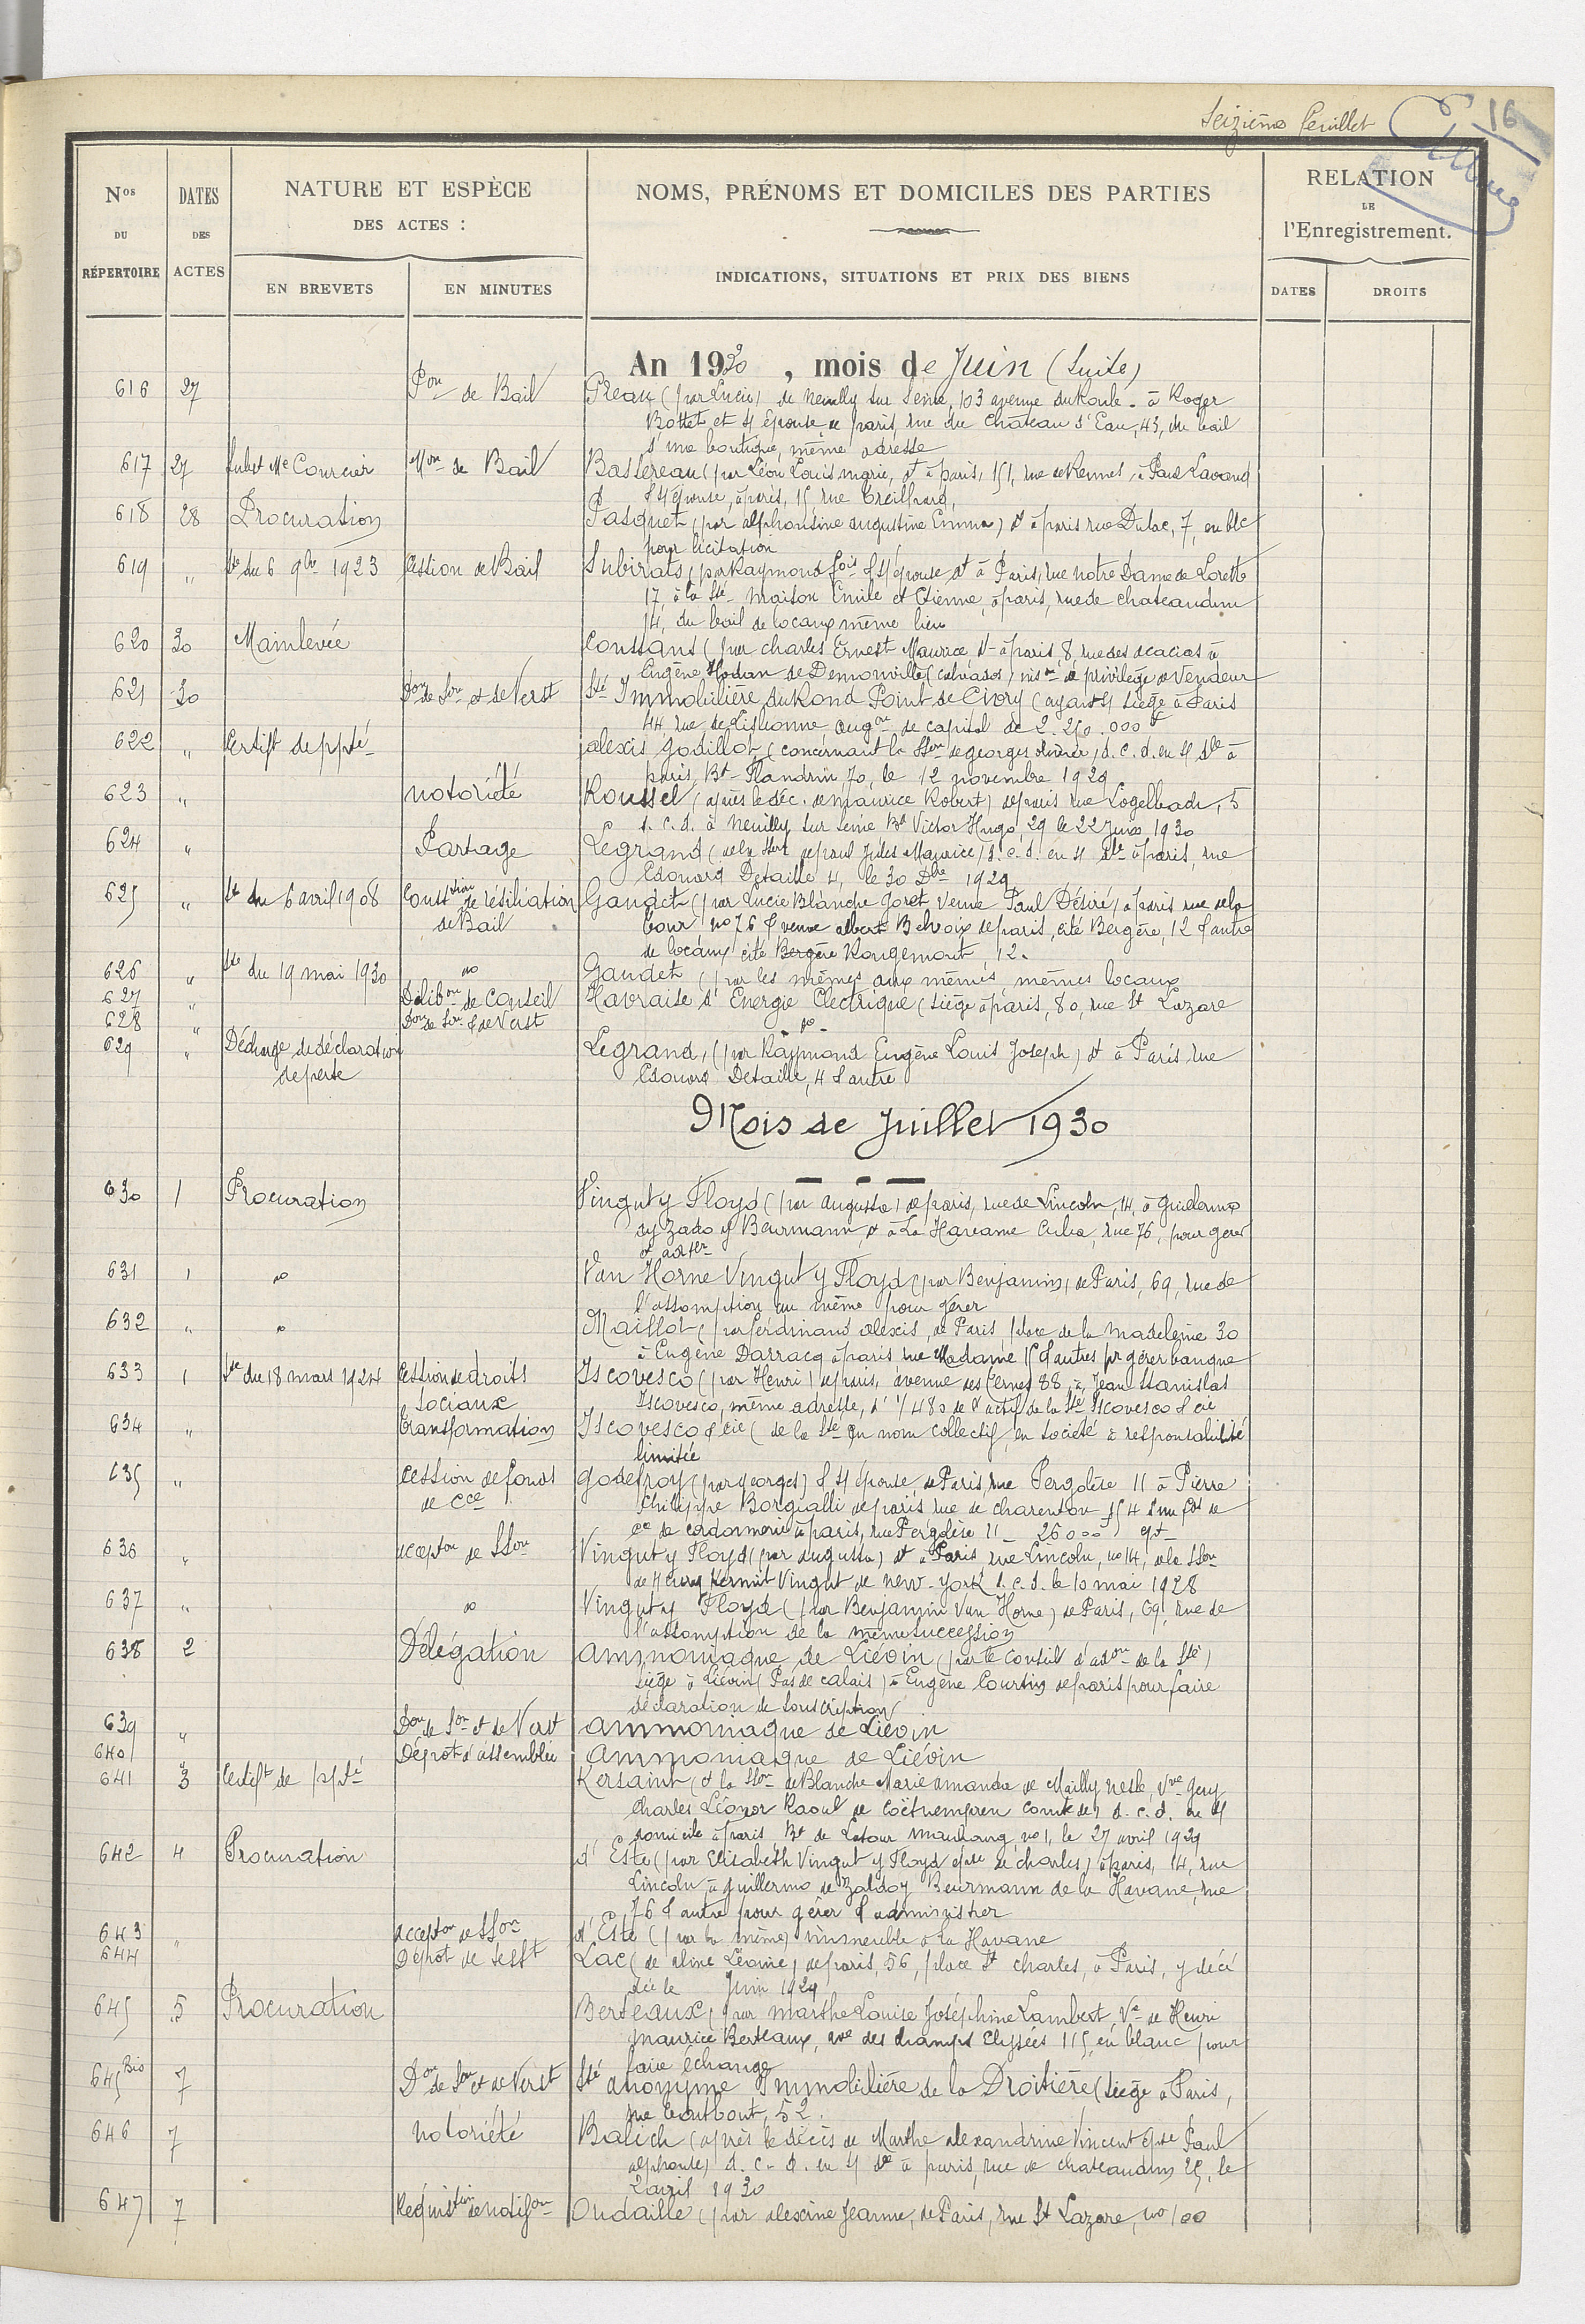 Seizième feuillet
16
Nos DU RÉPERTOIRE
DATES DES ACTES
NATURE ET ESPÈCE DES ACTES :
EN BREVETS
EN MINUTES
NOMS, PRÉNOMS ET DOMICILES DES PARTIES
INDICATIONS, SITUATIONS ET PRIX DES BIENS
RELATION DE l'Enregistrement.
DATES
DROITS
An 1930, mois de Juin (Suite)
616 27 Pon de Bail Preau (par Lucie) de Neuilly sur Seine, 103 avenue du Roule à Roger
Bottet et s/ épouse de paris, rue du Chateau d'Eau, 43, du bail
d'une boutique, même adresse
617 27 Subst Me Courcier Mon de Bail Bassereau (par Léon Louis marie, dt à paris, 151, rue de Rennes, à Paul Lavand
& s/ épouse, à paris, 15 rue Treilhard,
618 28 Procuration Pasquet (par alphonsine augustine Emma) dt à paris rue Dulac, 7, en blc
pour licitation
619 " Ste du 6 9bre 1923 Cession de Bail Subirats (par Raymond fois & s/ épouse dt à Paris, rue notre Dame de Lorette
17, à la Sté Maison Emile et Etienne, à paris, rue de chateaudun
14, du bail de locaux même lieu
620 30 Mainlevée Constant (par charles Ernest Maurice, dt à paris, 8, rue des acacias à
Eugène de Demouville (calvados) inson de privilège de vendeur
621 30 Don de Son et de Verst Sté Immobilière du Rond Point de Civry (ayant s/ siège à Paris
44, rue de Lisbonne, augon de capital de 2.250.000 f
622 " Certift de ppté alexis godillot (concernant la sson de georges olivier) d.c.d. en s/ dle à
paris, Bt Flandrin 70, le 12 novembre 1929
623 " notoriété Roussel (après le déc. de maurice Robert) de paris rue Logelbach, 5
d.c.d. à Neuilly sur Seine Bd Victor Hugo, 29 le 22 Juin 1930
624 " Partage Legrand (de la sson de paul Jules Maurice) d.c.d. en s/ dle à paris, rue
Edouard Detaille 4, le 30 Dbre 1929
625 " Ste du 6 avril 1908 Consttion de résiliation de Bail Gaudet (par Lucie Blanche Goret veuve Paul Désiré) à paris rue de la
Tour no 76 & veuve albert Belvoix de paris, cité Bergère, 12 & autre
de locaux cité Bergère Rougemont, 12.
626 " Ste du 19 mai 1930 do Gaudet (par les mêmes aux mêmes, mêmes locaux
627 " Délibon de Conseil Havraise d'Energie Electrique (siège à paris, 80, rue St Lazare
628 " Don de Son & de Verst - do -
629 " Décharge de déclaration de perte Legrand, (par Raymond Eugène Louis Joseph) dt à Paris rue
Edouard Detaille, 4 & autre
Mois de Juillet 1930
630 1 Procuration Vingut y Floyd (par augusta) de paris, rue de Lincoln, 14, à guillermo
de Zaldo y Beurmann, dt à La Havane Cuba, rue 76, pour gérer
et adster
631 1 do Van Horne Vingut y Floyd (par Benjamin) de Paris, 69, rue de
l'assomption au même pour gérer
632 " do Maillot (par ferdinand alexis, de Paris place de la madeleine 30
à Eugène Darracq à paris rue Madame 15 & autres pr gérer banque
633 1 Ste du 18 mars 1924 Cession de droits sociaux Iscovesco (par Henri) de paris, avenue des Ternes 88, à Jean Stanislas
Iscovesco, même adresse, d'1/480 de l'actif de la Sté Iscovesco & cie
634 " Transformation Iscovesco & cie (de la Sté en nom collectif, en société à responsabilité
limitée
635 " Cession de fonds de Cce godefroy (par georges) & s/ épouse, de Paris, rue Pergolèse 11 à Pierre
Philippe Borgialli de paris rue de charenton 154 d'un fds de
cce de cordonnerie à paris, rue Pergolèse 11 26000 f
636 " accepton de Sson Vingut y Floyd (par augusta) dt à Paris, rue Lincoln, no 14, de la sson
de Henry Kermit Vingut de new-york d.c.d. le 10 mai 1928
637 " do Vingut y Floyd (par Benjamin Van Horne) de Paris, 69, rue de
l'assomption de la même succession
638 2 Délégation ammoniaque de Liévin (par le conseil d'adon de la Sté)
siège à Liévin (Pas de calais) à Eugène Courtin de paris pour faire
déclaration de souscription
639 " Don de Son et de Verst ammoniaque de Liévin
640 " Dépot d'assemblée ammoniaque de Liévin
641 3 Certift de ppté Kersaint (d la sson de Blanche Marie amanda de Mailly Nesle, Vve Guy
Charles Léonor Raoul de Coëtnempren comte de) d.c.d. en s/
domicile à paris, Bt de Latour Maubourg no 1, le 27 avril 1929
642 4 Procuration d'Este (par Elisabeth Vingut y Floyd épse de charles) à paris, 14, rue
Lincoln à guillermo de Zaldo y Beurmann de la Havane, rue
76 & autre pour gérer & administrer
643 " accepton de sson d'Este (par la même) immeuble à la Havane
644 Dépot de test Lac (de aline Léonie) de paris, 56, place St charles, à Paris, y décé
dée le Juin 1929
645 5 Procuration Berteaux (par marthe Louise Joséphine Lambert, Ve de Henri
maurice Berteaux, ave des champs Elysées 115, en blanc pour
faire échange
645 Bis 7 Don de Son et de Verst Sté anonyme Immobilière de la Droitière (siège à Paris,
rue Taitbout, 52.
646 7 notoriété Balich (après le décès de Marthe alexandrine Vincent épse Paul
alphonse) d.c.d. en s/ dle à paris, rue de chateaudun 25, le
2 avril 1930
647 7 Requistion de notifon Oudaille (par alexine Jeanne, de Paris, rue St Lazare, no 100